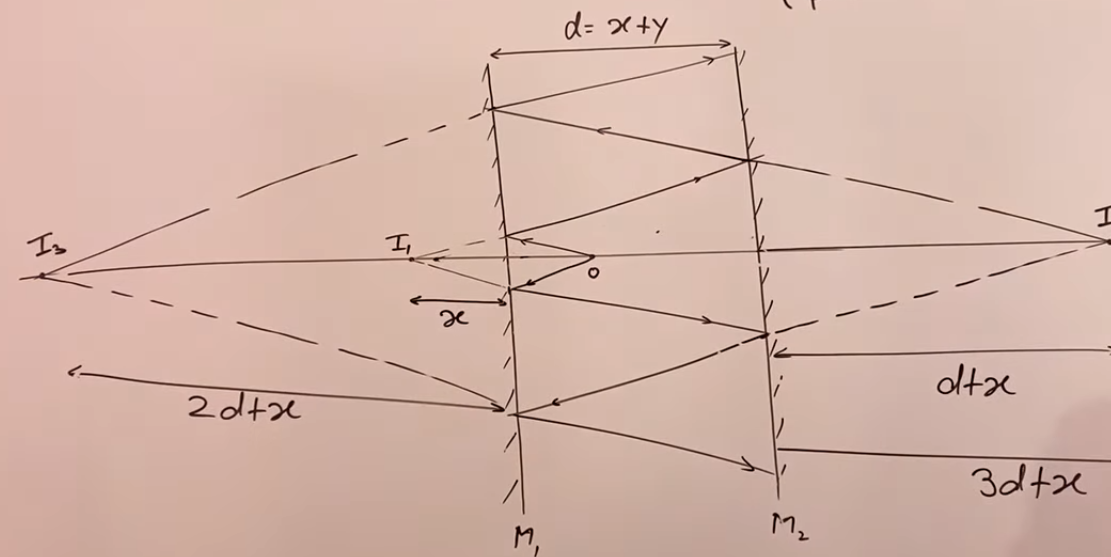 d = x+y
I₃
I₁
I
o
x
d+x
2d+x
3d+x
M₁
M₂